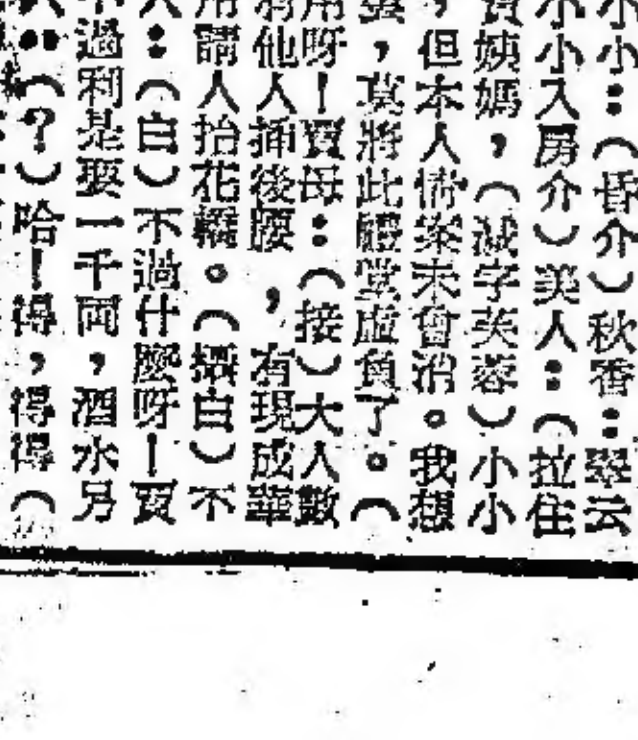 小小：（昏介）秋香：翠云
小小入房介）美人：（拉住
姨媽，（減字芙蓉）小小
，但本人情案未曾消。我想
，莫將此體堂虛負了。（
用呀！賈母：（接）大人數
將他人揷後腰，有現成華
用請人抬花轎。（攝白）不
：（白）不過什麼呀！賈
不過利是要一千両，酒水另
：（？）哈！得，得得（